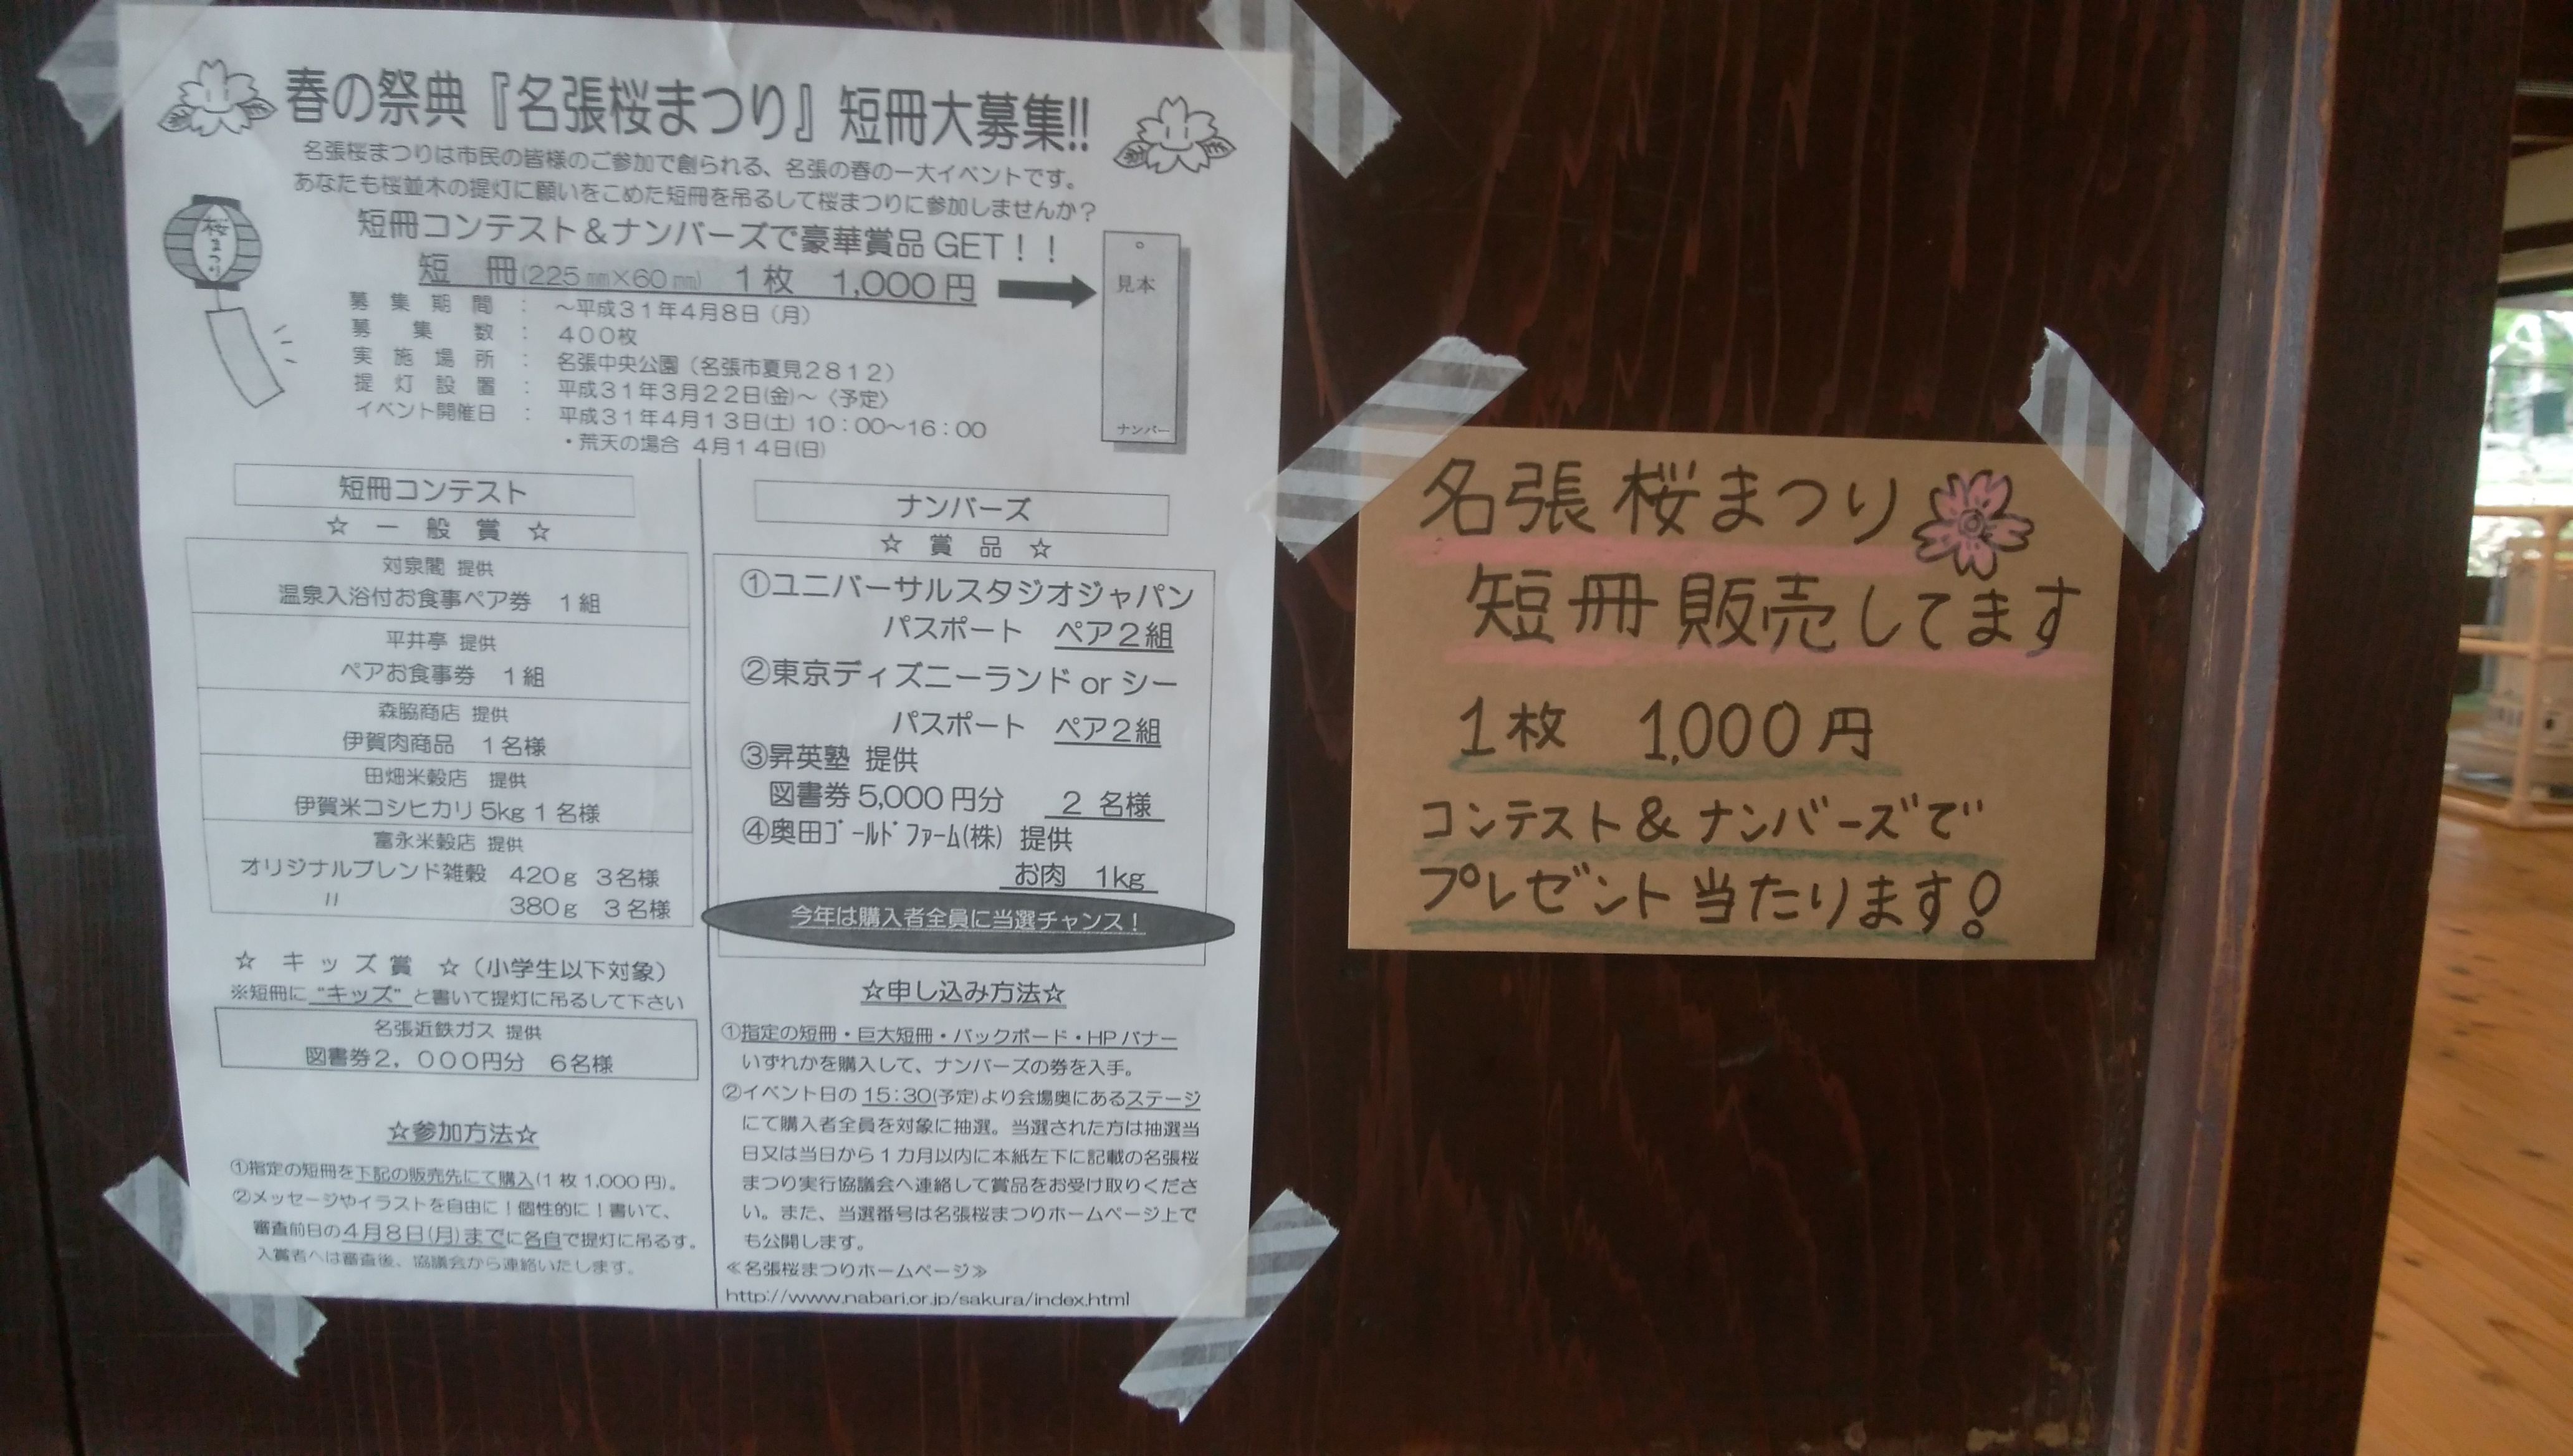 春の祭典『名張桜まつり』短冊大募集!!
名張桜まつりは市民の皆様のご参加で創られる、名張の春の一大イベントです。
あなたも桜並木の提灯に願いをこめた短冊を吊るして桜まつりに参加しませんか？
短冊コンテスト＆ナンバーズで豪華賞品 GET！！
短　冊(225㎜×60㎜)　1枚　1,000円
募集期間：～平成31年4月8日（月）
募集数：400枚
実施場所：名張中央公園（名張市夏見2812）
提灯設置：平成31年3月22日(金)～〈予定〉
イベント開催日：平成31年4月13日(土) 10：00～16：00
・荒天の場合 4月14日(日)
桜まつり
見本
ナンバー
短冊コンテスト
☆ 一 般 賞 ☆
対泉閣 提供
温泉入浴付お食事ペア券　1組
平井亭 提供
ペアお食事券　1組
森脇商店 提供
伊賀肉商品　1名様
田畑米穀店　提供
伊賀米コシヒカリ 5kg 1名様
富永米穀店 提供
オリジナルブレンド雑穀　420g　3名様
〃　380g　3名様
☆ キッズ賞 ☆（小学生以下対象）
※短冊に “キッズ” と書いて提灯に吊るして下さい
名張近鉄ガス 提供
図書券2，000円分　6名様
☆参加方法☆
①指定の短冊を下記の販売先にて購入(1枚 1,000円)。
②メッセージやイラストを自由に！個性的に！書いて、
審査前日の4月8日(月)までに各自で提灯に吊るす。
入賞者へは審査後、協議会から連絡いたします。
ナンバーズ
☆ 賞 品 ☆
①ユニバーサルスタジオジャパン
パスポート　ペア2組
②東京ディズニーランド or シー
パスポート　ペア2組
③昇英塾 提供
図書券 5,000円分　2 名様
④奥田ｺﾞｰﾙﾄﾞﾌｧｰﾑ(株) 提供
お肉　1kg
今年は購入者全員に当選チャンス！
☆申し込み方法☆
①指定の短冊・巨大短冊・バックボード・HPバナー
いずれかを購入して、ナンバーズの券を入手。
②イベント日の 15：30(予定)より会場奥にあるステージ
にて購入者全員を対象に抽選。当選された方は抽選当
日又は当日から1カ月以内に本紙左下に記載の名張桜
まつり実行協議会へ連絡して賞品をお受け取りくださ
い。また、当選番号は名張桜まつりホームページ上で
も公開します。
≪名張桜まつりホームページ≫
http://www.nabari.or.jp/sakura/index.html
名張桜まつり
短冊販売してます
1枚　1,000円
コンテスト＆ナンバーズで
プレゼント当たります！